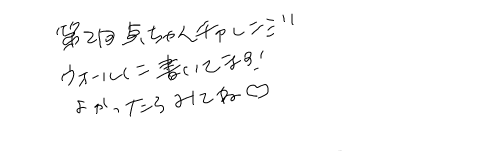 第2回 点ちゃんチャレンジ!!
ウォールに書いてます!
よかったらみてね♡